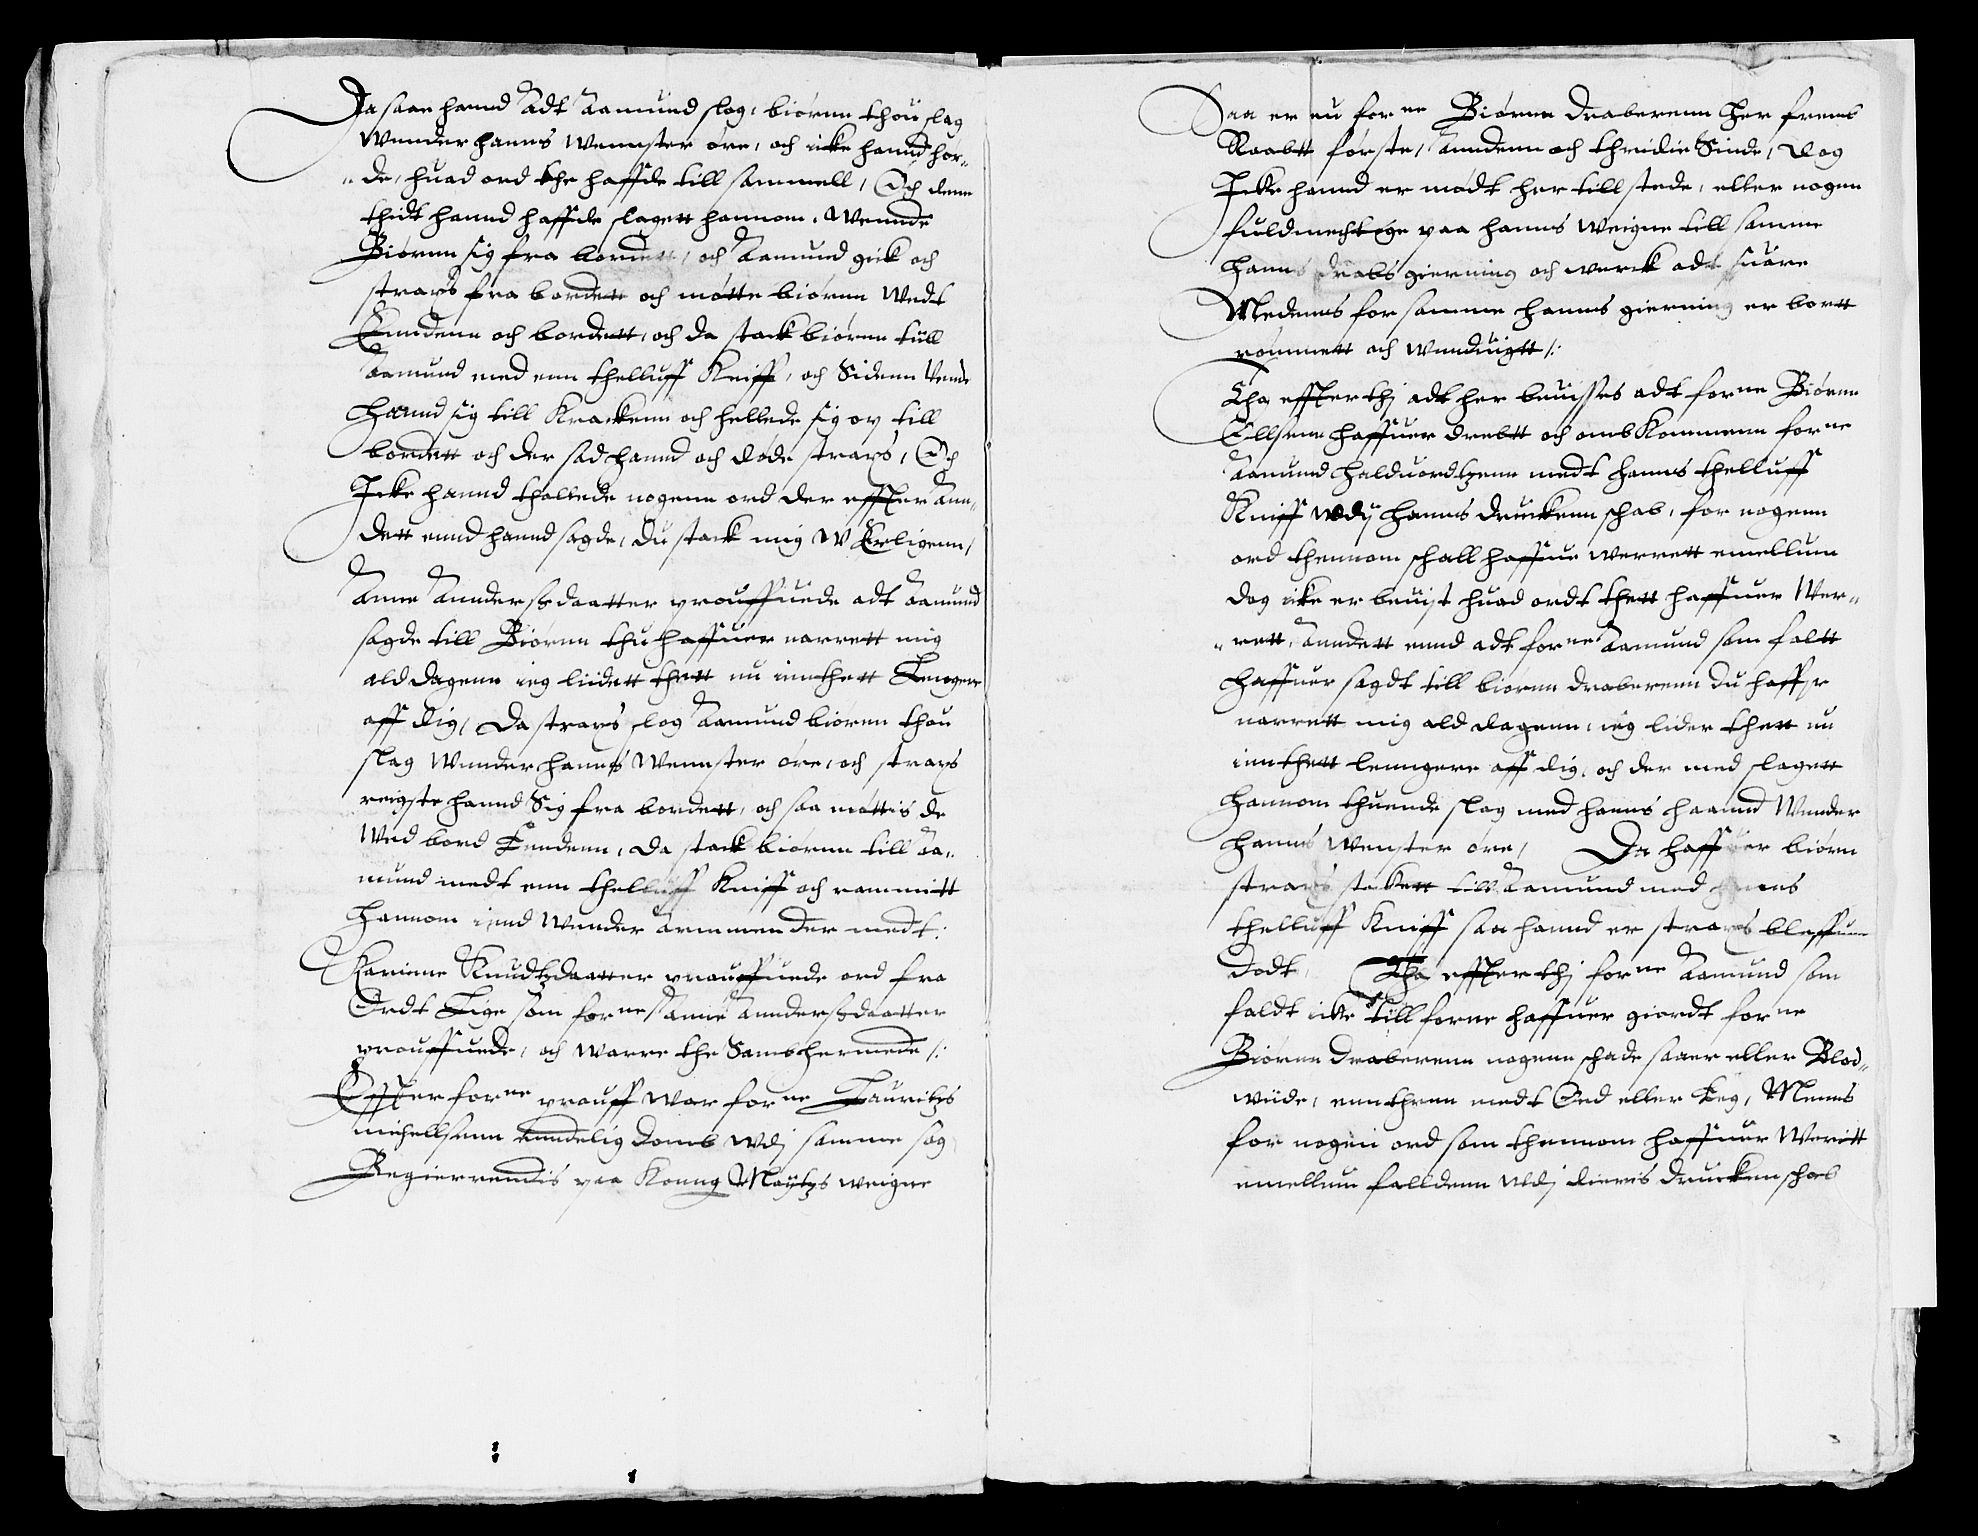 Da saae hannd Adt Aamund slog, biørnn thou slag
Wunder hanns Wennster øre, och icke hannd hør,,
,,de, huad ord the haffde till sammell, Och denn
thidt hannd haffde slagett hannom. Wennde
Biørnn sig fra bordett, och Aamund gick och
strax fra bordett och møtte biørnn Wedt
Enndenn och bordett, och da stack biørnn till
Aamund med enn thelluff Kniff, och Sidenn Vende
Hannd sig till Krackenn och hellede sig op till
bordett och der sad hannd och døde strax, Och
Icke hannd thallede nogenn ord der effter Ann,,
dett ennd hannd sagde, Du stack mig W Erligenn,
Anne Anndersdaatter prouffuede adt Aamund
sagde till Biørnn thu haffuer narrett mig
ald dagenn ieg liidett thett nu innthett Lenngere
aff dig, Da strax slog Aamund biørnn thou
slag Wunder hanns Wennster øre, och strax
reigste hannd Sig fra bordett, och saa møttis de
Wid bord Enndenn, da stack biørnn till Aa,,
mund medt enn thelluff Kniff och rammitt
Hannom ind Wunder Armmen der medt:
Karinne Knudtzdaatter prouffuede ord fra
Ordt Lige som forne Anne Anndersdaatter
prouffuede, och warre the Samb hermede /:
Effter forne prouff war forne Lauritzs
michellsenn enndelig domb Wdj samme sag
Begierrendis paa Konng Maÿtzs weigne
Saa er nu forne Biørnn draberenn Her frem
Raabtt første, Anndenn och thridie Sinde, dog
Icke hannd er mødt her till stede, eller nogen
fuldmechtige paa hanns weigne till samme
Hanns drabs gierning och werck adt suare
Medenns for samme hanns gierning er bortt
rømmett och Wnduigtt /:
Tha effter thj adt her beuisses adt forne Biørnn
Ellsenn haffuer drebtt och omb Kommenn forne
Aamund Halduordtzenn medt hanns thelluff
Kniff wdj hanns druckenn schab, for nogenn
ord thennom schall haffue werrett emellum
dog icke er beuist huad ordt thett haffuer Wer,,
,,rett, Anndett ennd adt forne Aamund som faltt
Haffuer sagdt till biørnn draberenn du haffr
narrett mig ald dagenn, ieg lider thett nu
innthett lenngere aff dig, och der med slagett
Hannom thuende slag med hanns haannd Wunder
Hanns Wenster øre, Da haffuer biørn
strax stukett till Aamund med hanns
thelluff Kniff saa hannd er strax bleffuenn
dødt, Tha effter thj forne Aamund som
faldt icke till forne haffuer giordt forne
Biørnn draberenn nogenn schade saaer eller Blod,,
wiide, ennthenn medt Od eller Eeg, Menns
for nogenn ord som thennom haffuer Weritt
emellum falldenn Wdj dieris druckenschab